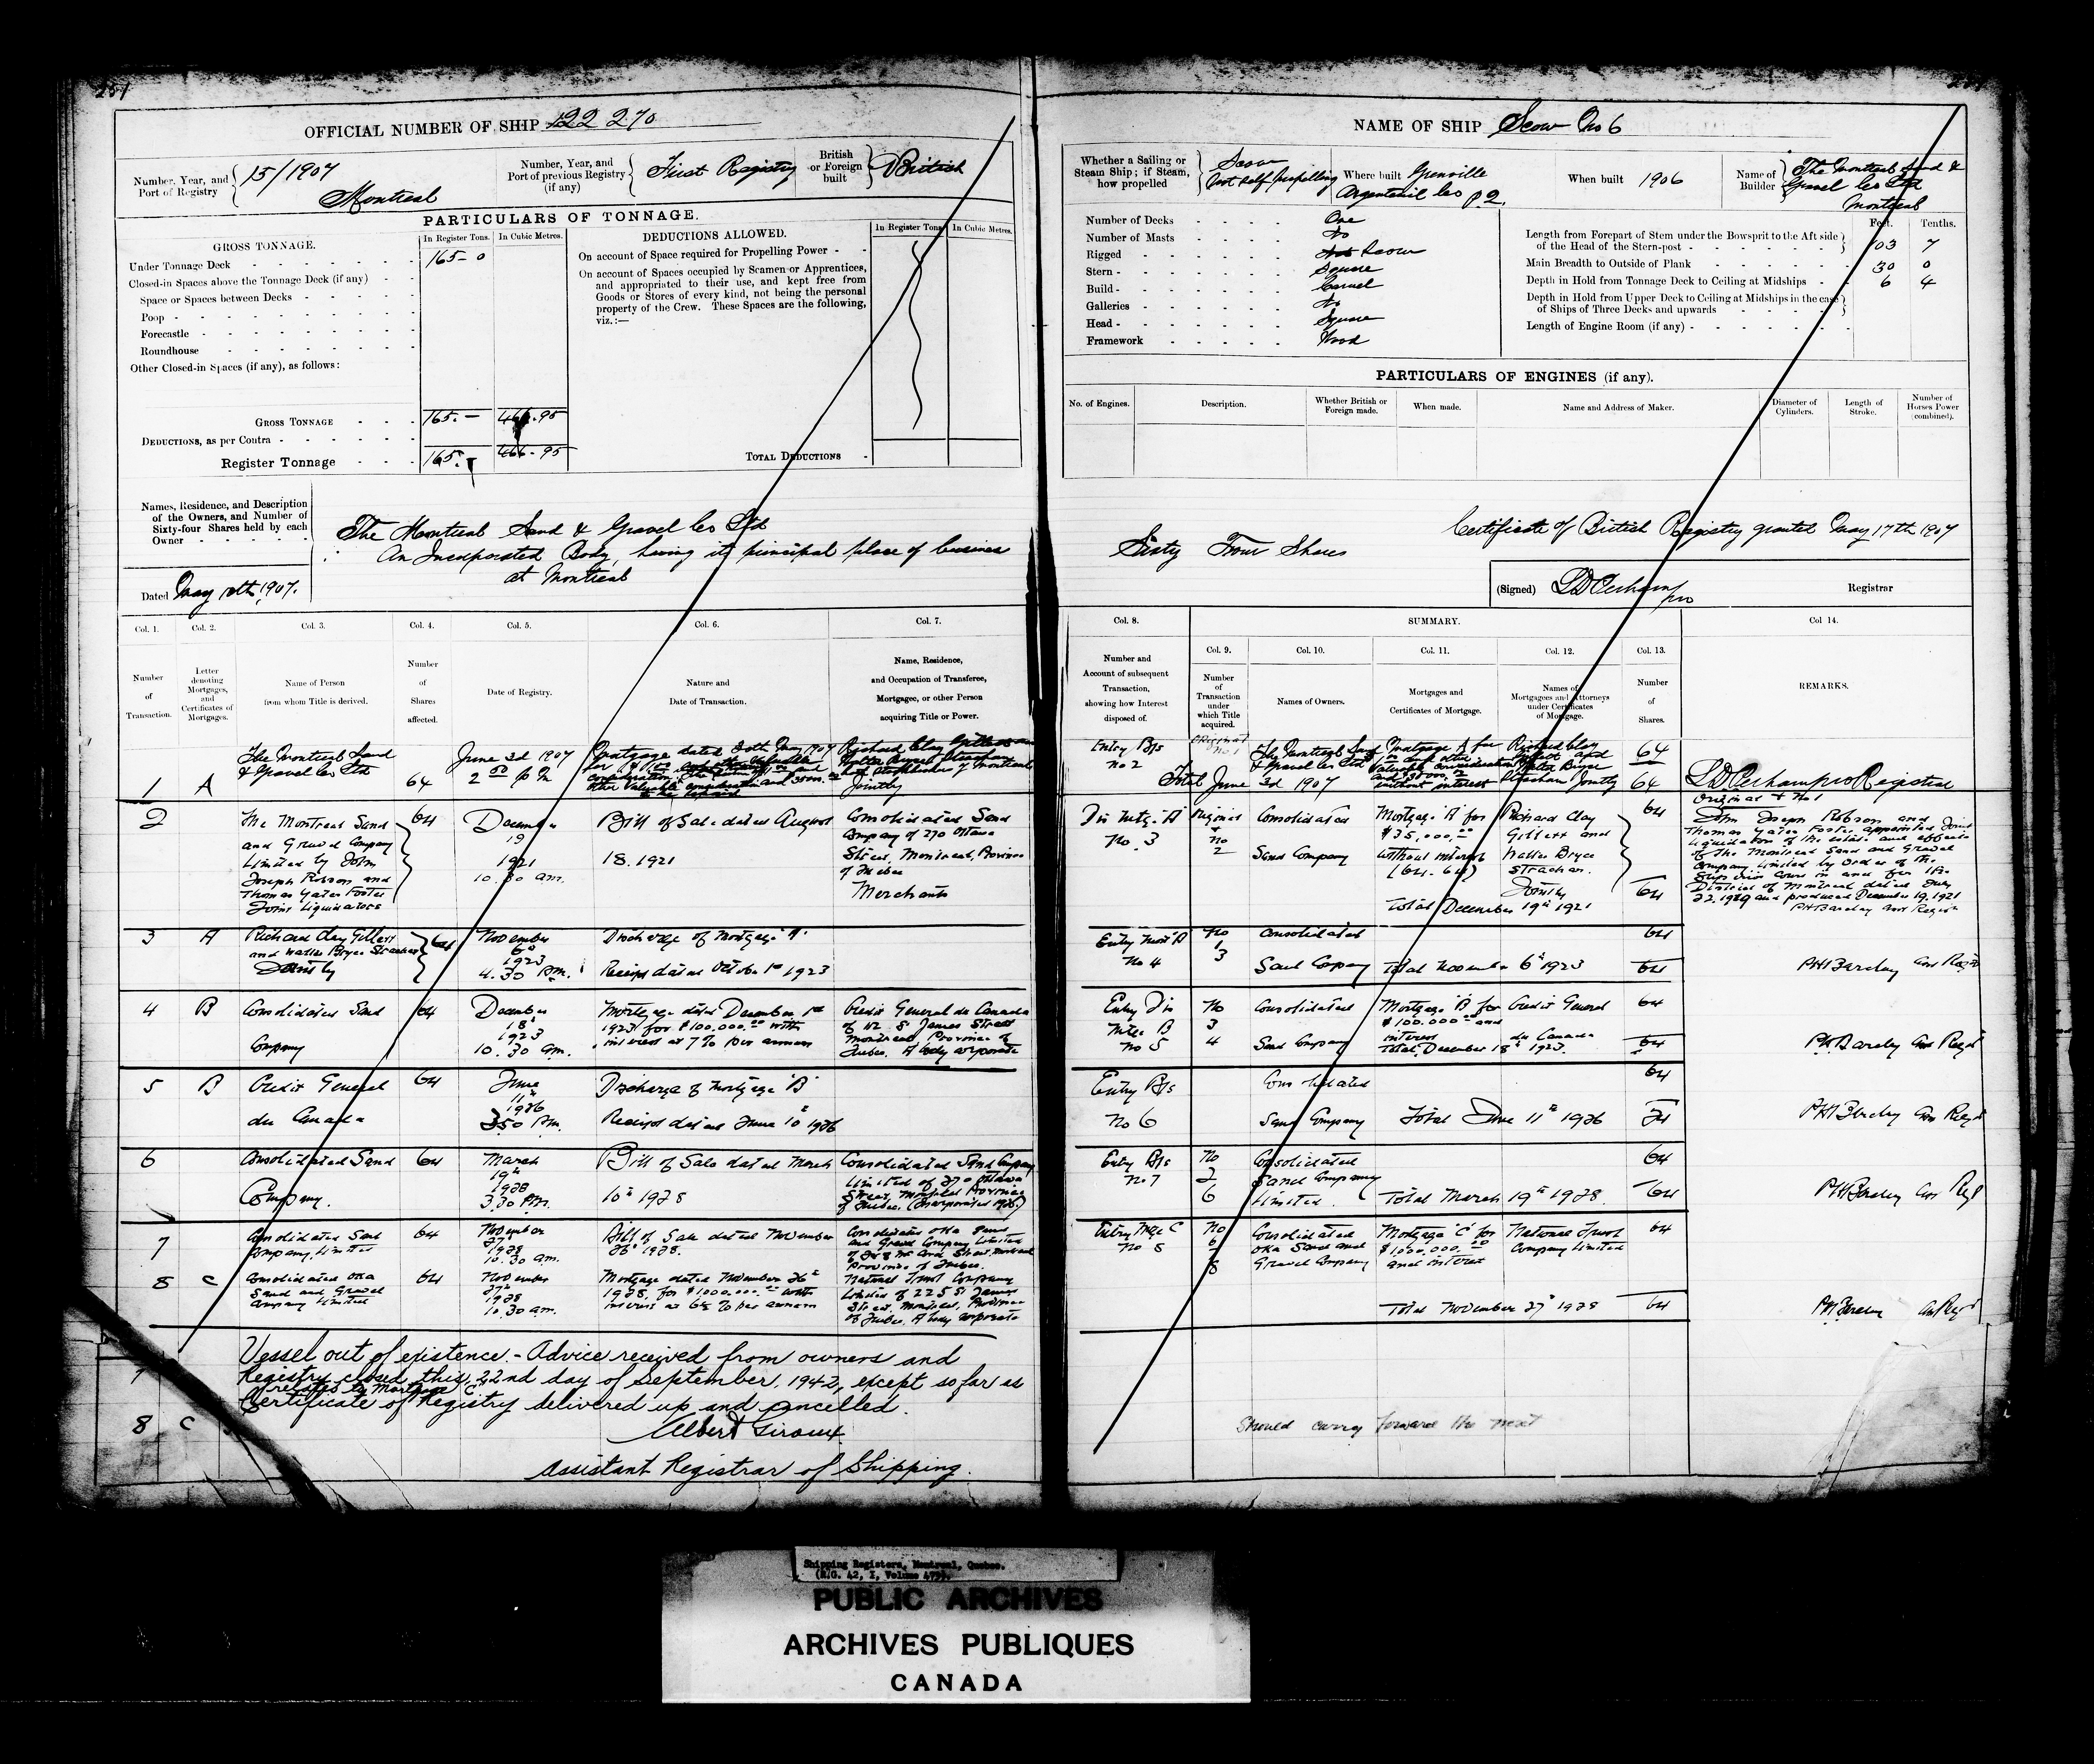 OFFICIAL NUMBER OF SHIP 122 270
Number, Year, and Port of Registry 15/1907 Montreal
Number, Year, and Port of previous Registry (if any) First Registry
British or Foreign built British
PARTICULARS OF TONNAGE.
GROSS TONNAGE. In Register Tons. In Cubic Metres.
Under Tonnage Deck 165 - 0
Closed-in Spaces above the Tonnage Deck (if any)
Space or Spaces between Decks
Poop
Forecastle
Roundhouse
Other Closed-in Spaces (if any), as follows:
GROSS TONNAGE 165. - 466.95
DEDUCTIONS, as per Contra
Register Tonnage 165. 466-95
DEDUCTIONS ALLOWED. In Register Tons. In Cubic Metres.
On account of Space required for Propelling Power
On account of Spaces occupied by Seamen or Apprentices,
and appropriated to their use, and kept free from
Goods or Stores of every kind, not being the personal
property of the Crew. These Spaces are the following,
viz.:—
TOTAL DEDUCTIONS
Names, Residence, and Description
of the Owners, and Number of
Sixty-four Shares held by each
Owner
The Montreal Sand & Gravel Co Ltd
An Incorporated Body, having its principal place of business
at Montreal
Dated May 1907.
NAME OF SHIP Scow No 6
Whether a Sailing or Steam Ship; if Steam, how propelled Scow Not Self propelling
Where built Grenville Argenteuil Co P.Q.
When built 1906
Name of Builder The Montreal Sand & Gravel Co Ltd Montreal
Number of Decks One
Number of Masts No
Rigged Scow
Stern Square
Build Carvel
Galleries No
Head Square
Framework Wood
Feet. Tenths.
Length from Forepart of Stem under the Bowsprit to the Aft side
of the Head of the Stern-post 103 7
Main Breadth to Outside of Plank 30 0
Depth in Hold from Tonnage Deck to Ceiling at Midships 6 4
Depth in Hold from Upper Deck to Ceiling at Midships in the case
of Ships of Three Decks and upwards
Length of Engine Room (if any)
PARTICULARS OF ENGINES (if any).
No. of Engines. Description. Whether British or Foreign made. When made. Name and Address of Maker. Diameter of Cylinders. Length of Stroke. Number of Horses Power (combined).
Sixty Four Shares
Certificate of British Registry granted May 17th 1907
(Signed) Registrar
Col. 1. Number of Transaction.
Col. 2. Letter denoting Mortgages, and Certificates of Mortgages.
Col. 3. Name of Person from whom Title is derived.
Col. 4. Number of Shares affected.
Col. 5. Date of Registry.
Col. 6. Nature and Date of Transaction.
Col. 7. Name, Residence, and Occupation of Transferee, Mortgagee, or other Person acquiring Title or Power.
Col. 8. Number and Account of subsequent Transaction, showing how Interest disposed of.
SUMMARY.
Col. 9. Number of Transaction under which Title acquired.
Col. 10. Names of Owners.
Col. 11. Mortgages and Certificates of Mortgage.
Col. 12. Names of Mortgagees and Attorneys under Certificates of Mortgage.
Col. 13. Number of Shares.
Col 14. REMARKS.
1 A The Montreal Sand & Gravel Co Ltd
64
June 3d 1907
Mortgage dated 30th May 1907
Jointly
2
The Montreal Sand
and Gravel Company
Limited by John
Joseph Robson and
Thomas Yates Foster
Joint Liquidators
64
December
19
1921
10.30 am.
Bill of Sale dated August
18. 1921
Consolidated Sand
Company of 270 Ottawa
Street, Montreal, Province
of Quebec
Merchants
3 A
Richard Clay Gillett
and Walter Bryce Strachan
Jointly
64
November
6
1923
4.30 P.m.
Discharge of Mortgage "A"
Receipt dated October 1st 1923
4 B
Consolidated Sand
Company
64
December
18
1923
10.30 am.
Mortgage dated December 1st
1923 for $100.000.00 with
interest at 7% per annum
Credit General du Canada
of 112 St James Street
Montreal, Province of
Quebec. A body corporate
5 B
Credit General
du Canada
64
June
11th
1926
3.50 P.M.
Discharge of Mortgage "B"
Receipt dated June 10th 1926
6
Consolidated Sand
Company.
64
March
19th
1928
3.30 P.M.
Bill of Sale dated March
10th 1928
Consolidated Sand Company
Limited of 270 Ottawa
Street, Montreal Province
of Quebec.
7
Consolidated Sand
Company, Limited
64
November
27th
1928
10.30 am.
Bill of Sale dated November
26th 1928.
Consolidated Oka Sand
and Gravel Company Limited
Province of Quebec.
8 C
Consolidated Oka
Sand and Gravel
Company Limited
64
November
27th
1928
10.30 am.
Mortgage dated November 26th
1928, for $1000.000.00 with
interest at 6½ % per annum
National Trust Company
Limited of 225 St James
Street, Montreal, Province
of Quebec, A body corporate
Vessel out of existence. - Advice received from owners and
Registry closed this 22nd day of September, 1942, except so far as
relates to Mortgage "C"
Certificate of Registry delivered up and cancelled.
Albert Giroux
Assistant Registrar of Shipping.
7
8 C
Entry B/s No 2
64
Total June 3d 1907 64
Dis Mtge. "A" No. 3
Original & No 2
Consolidated
Sand Company
Mortgage "A" for
$35,000.00
without interest
(64-64)
Richard Clay
Gillett and
Walter Bryce
Strachan.
Jointly
64
Total December 19th 1921 64
John Joseph Robson and
Thomas Yates Foster appointed Joint
Liquidators of the estate and effects
of the Montreal Sand and Gravel
Company Limited by order of the
Superior Court in and for the
District of Montreal
and produced December 19, 1921
Entry Mort "B" No 4
No 3
Consolidated
Sand Company
64
Total November 6th 1923 64
Entry Dis Mtge. B No 5
No 3 4
Consolidated
Sand Company
Mortgage "B" for
$100.000.00 and
interest
Credit General
du Canada
64
Total December 18th 1923. 64
Entry B/s No 6
Consolidated
Sand Company
64
Total June 11th 1926
Entry B/s No 7
No 6
Consolidated
Sand Company
Limited.
64
Total March 19th 1928 64
Entry Mge C No 8
No 8
Consolidated
Oka Sand and
Gravel Company
Mortgage "C" for
$1000.000.00
and interest
National Trust
Company Limited
64
Total November 27th 1928 64
Should carry forward the next
Shipping Registers, Montreal, Quebec.
PUBLIC ARCHIVES
ARCHIVES PUBLIQUES
CANADA